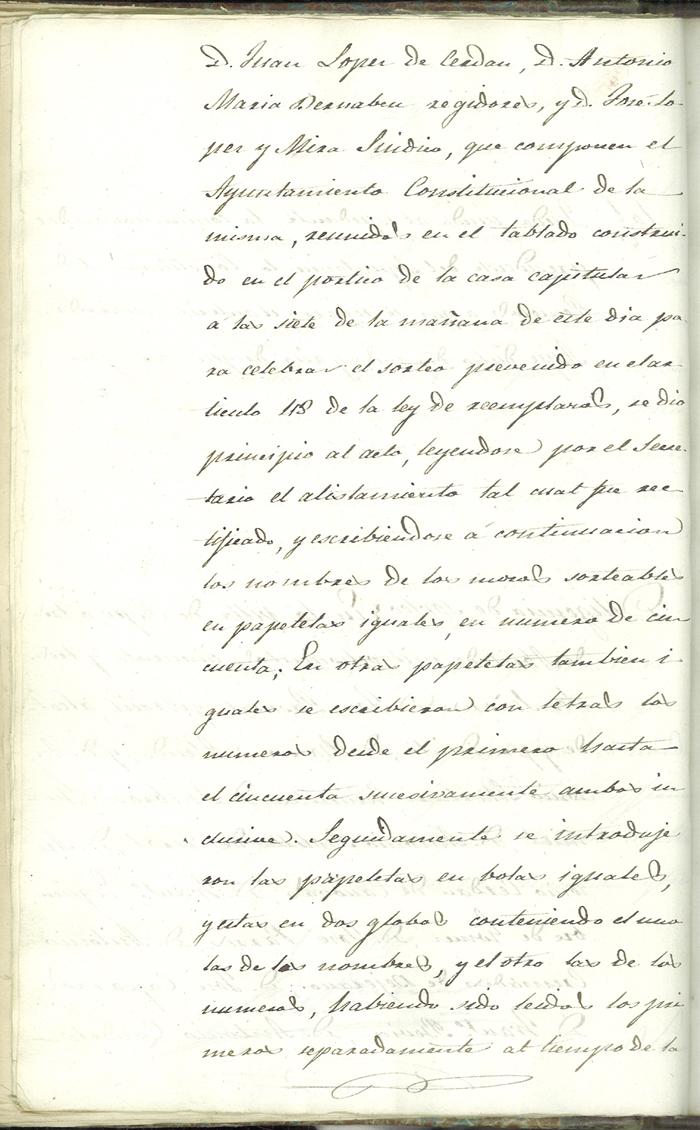 D. Juan Lopez de Cerdan, D. Antonio
Maria Bernabeu regidores, y D. José Lo-
pez y Mira Sindico, que componen el
Ayuntamiento Constitucional de la
misma, reunidos en el tablado construi-
do en el portico de la casa capitular
á las siete de la mañana de este dia pa-
ra celebrar el sorteo prevenido en el ar-
ticulo 118 de la ley de reemplazos, se dio
principio al acto, leyendose por el Secre-
tario el alistamiento tal cual fue rec-
tificado, y escribiendose á continuacion
los nombres de los mozos sorteables
en papeletas iguales, en numero de cin
cuenta; En otras papeletas tambien i-
guales se escribieron con letras los
numeros desde el primero hasta
el cincuenta sucesivamente ambos in
clusive. Seguidamente se introduje
ron las papeletas en bolas iguales,
y estas en dos globos conteniendo el uno
las de los nombres, y el otro las de los
numeros, habiendo sido leidos los pri
meros separadamente al tiempo de la